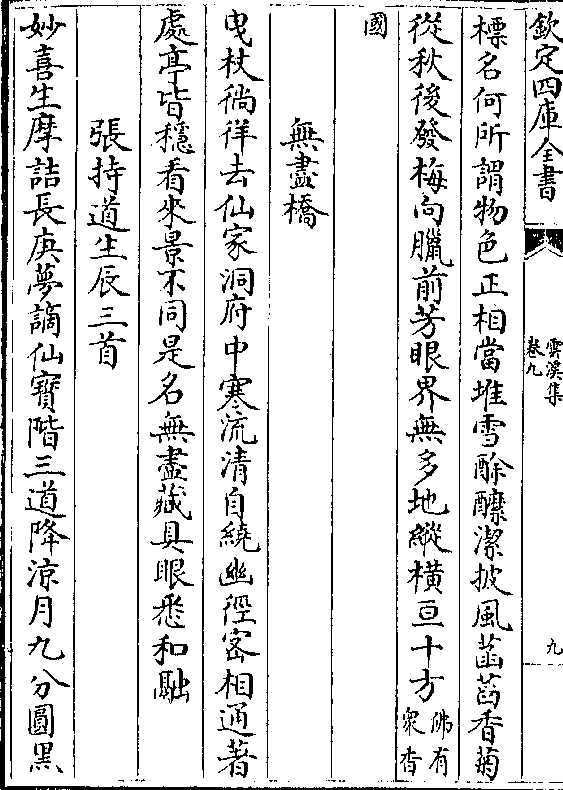 欽定四庫全書
雲溪集
卷九
九
標名何所謂物色正相當堆雪酴醿潔披風菡萏香菊
從秋後發梅向臘前芳眼界無多地縱横亘十方佛有
衆香
國
無盡橋
曳杖徜徉去仙家洞府中寒流清自繞幽徑宻相通著
處亭皆穩看來景不同是名無盡藏具眼悉和融
張持道生辰三首
妙喜生摩詰長庚夢謫仙寳階三道降涼月九分圓黑